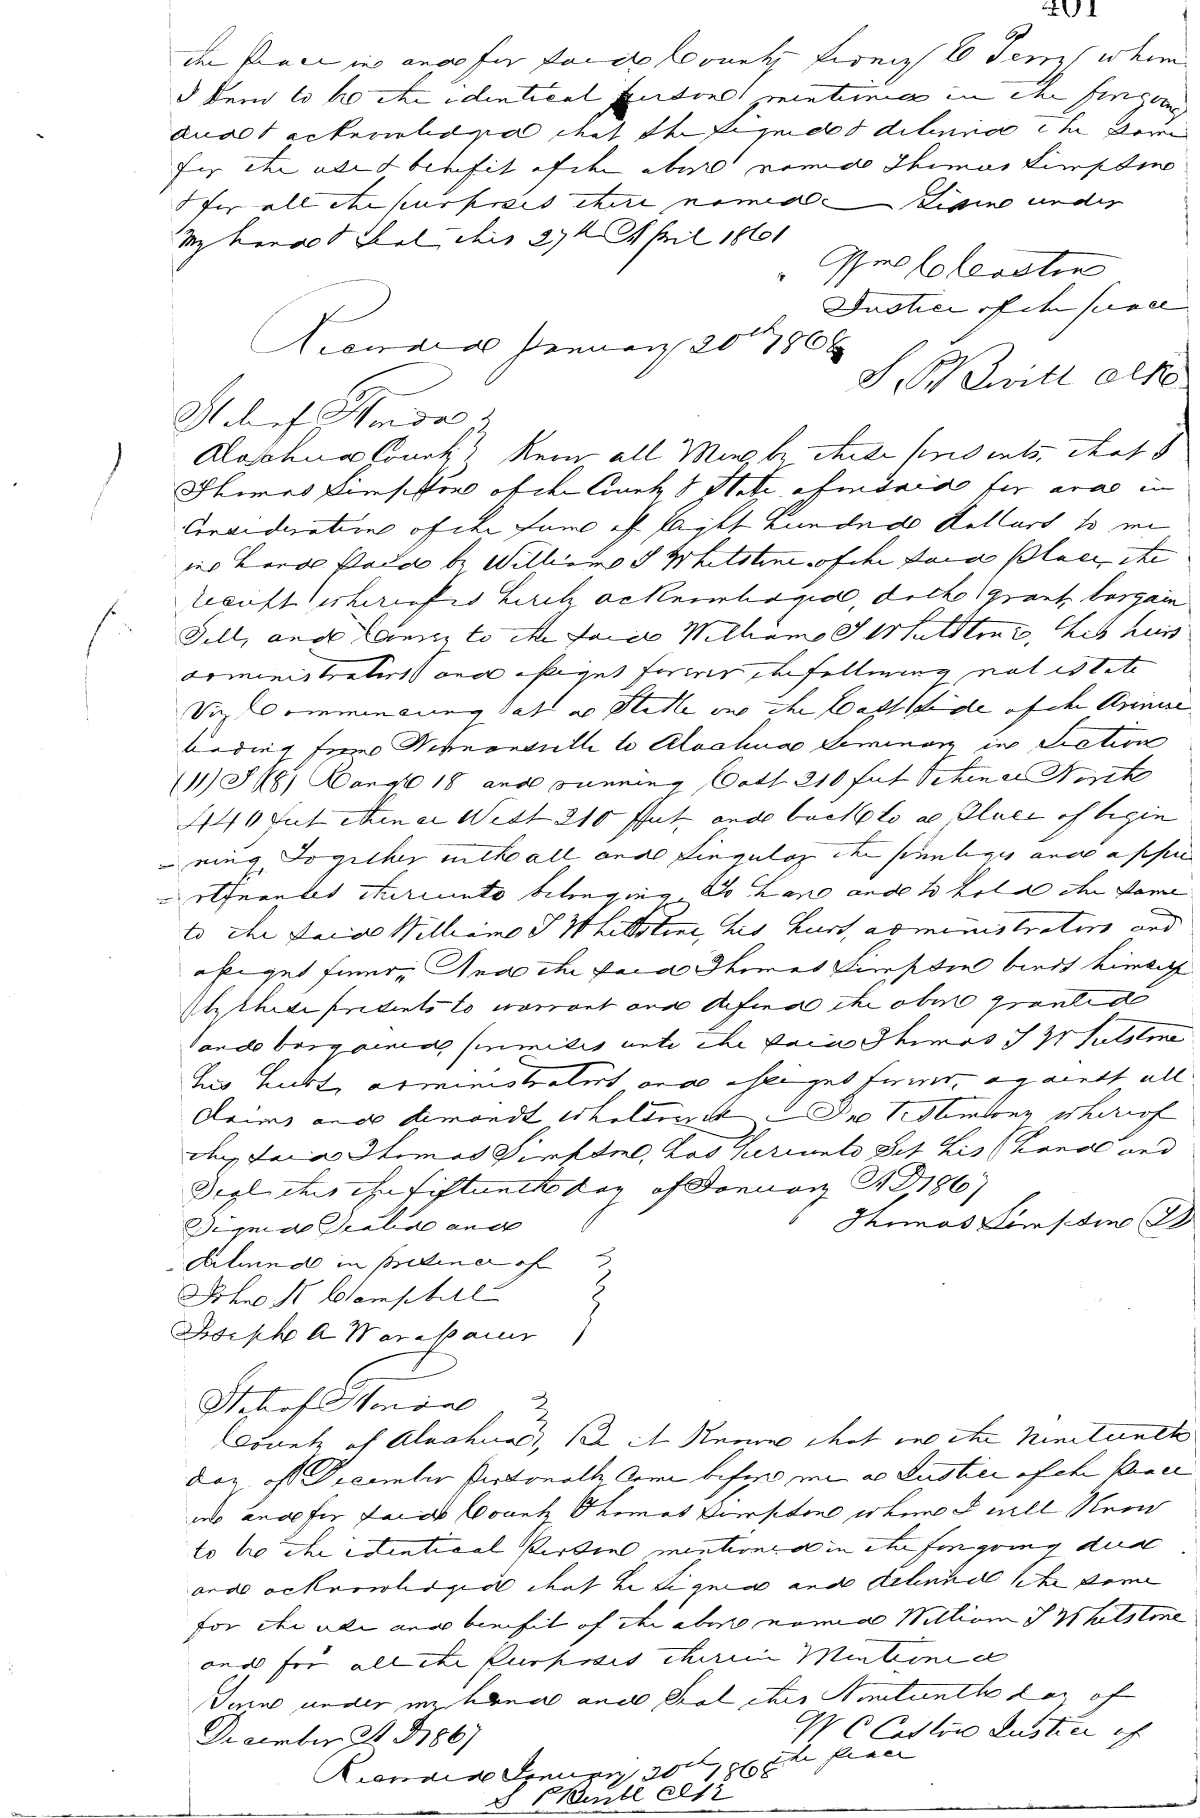 401
the Peace in and for said County Terry whom
I know to be the identical person mentioned in the foregoing
deed & acknowledged that she signed & delivered the same
for the use & benefit of the above named Thomas Simpson
& for all the purposes there named Given under
My hand & Seal this 27th April 1861
Justice of the peace
Recorded January 20th 1868
Clk
State of Florida
Alachua County Know all Men by these presents, that I
Thomas Simpson of the County & State aforesaid for and in
Consideration of the sum of Eight Hundred dollars to me
in hand paid by William T Whetstone of the said place, the
receipt whereof is hereby acknowledged, doth grant, bargain
Sell, and Convey to the said William T Whetstone, his heirs
administrators and assigns forever the following real estate
Viz Commencing at a Stake on the East Side of the Avenue
leading from Newnansville to Alachua Seminary in Section
(11) T (8) Range 18 and running East 210 feet thence North
440 feet thence West 210 feet, and back to a place of begin
-ning, Together with all and Singular the priviliges and appu
-rtenances thereunto belonging. To have and to hold the same
to the said William T Whetstone, his heirs, administrators and
assigns forever, And the said Thomas Simpson binds himself
by these presents to warrant and defend the above granted
and bargained premises unto the said Thomas T Whetstone
his heirs, administrators and assigns forever, against all
claims and demands whatsoever In Testimony whereof
the said Thomas Simpson, has hereunto Set his hand and
Seal this the fifteenth day of January AD 1867
Signed Sealed and Thomas Simpson
delivered in presence of
John Campbell
Joseph A
State of Florida
County of Alachua, Be it Known that on the Nineteenth
day of December Personally Came before me a Justice of the Peace
in and for said County Thomas Simpson whom I well Know
to be the identical Person mentioned in the foregoing deed
and acknowledged that he signed and delivered the same
for the use and benefit of the above named William T Whetstone
and for all the Purposes therein Mentioned
Given under my hand and Seal this Nineteenth day of
December AD 1867 W C Justice of
the peace
Recorded January 20th 1868
Clk